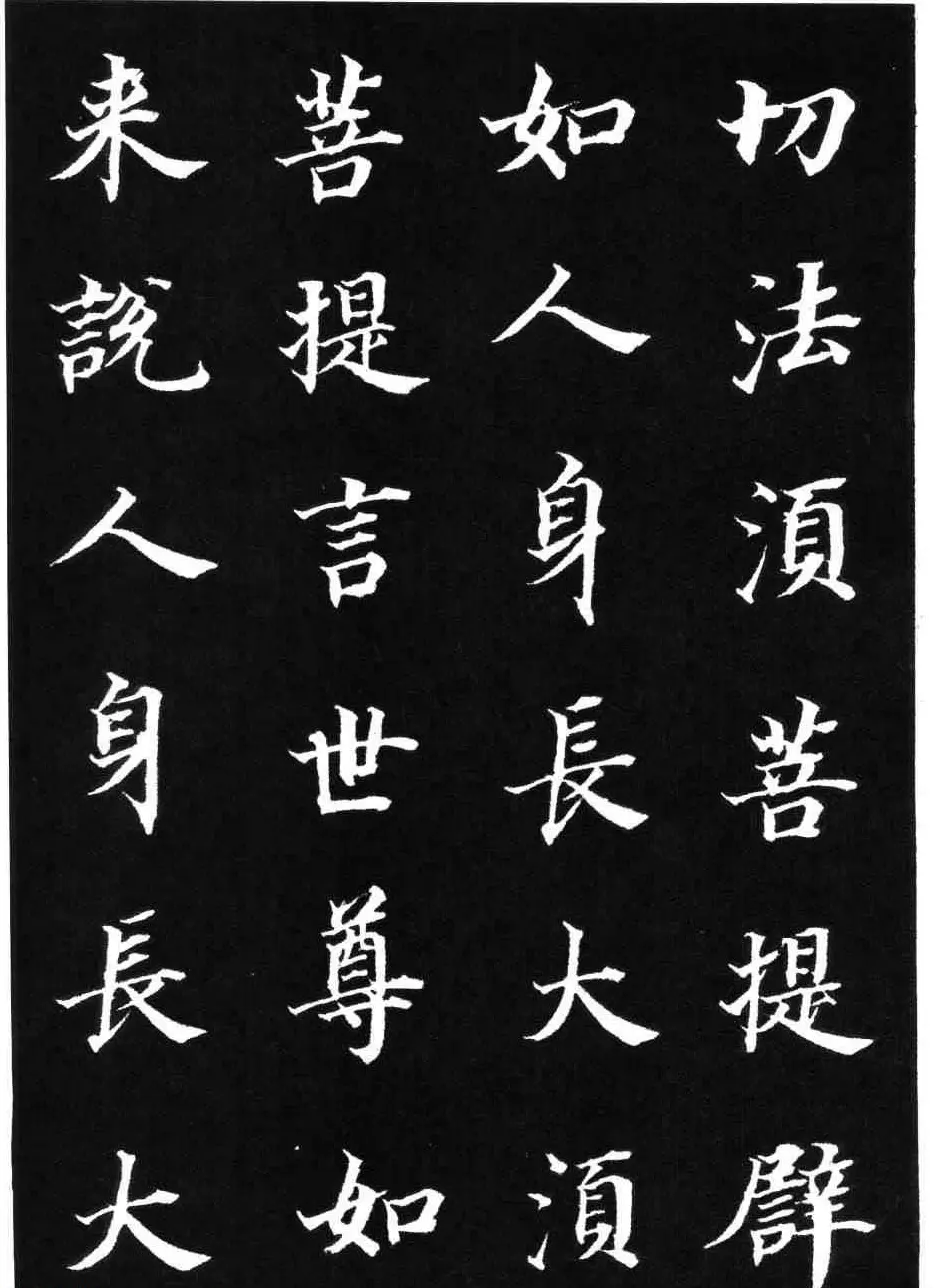 切法湏菩提譬
如人身長大湏
菩提言世尊如
来說人身長大